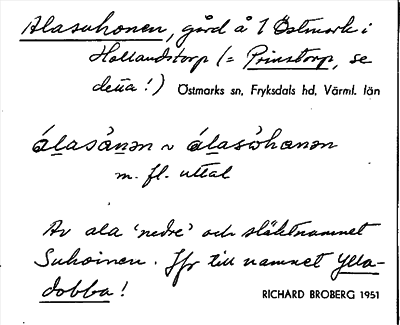 Alasuhonen, gård å 1 Östmark i
Hollandstorp (= Prinstorp, se
detta!) Östmarks sn, Fryksdals hd, Värml. län
álasòhanən
m. fl. uttal
Av ala 'nedre' och släktnamnet
Suhoinen. Jfr till namnet Ylla-
dobba!
RICHARD BROBERG 1951